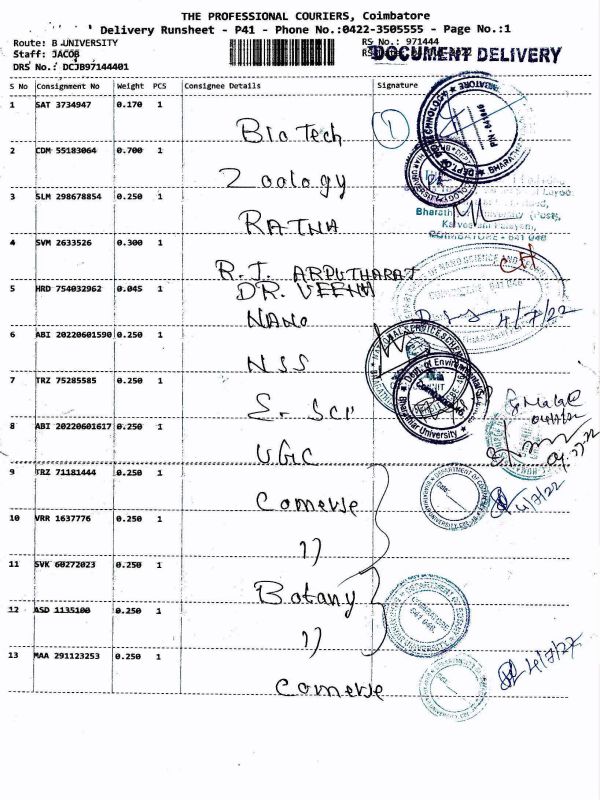 THE PROFESSIONAL COURIERS, Coimbatore
Delivery Runsheet - P41 - Phone No.:0422-3505555 - Page No.:1
Route: B UNIVERSITY
RS No.: 971444
Staff: JACOB
DOCUMENT DELIVERY
DRS No.: DCJB97144401
S No Consignment No Weight PCS Consignee Details Signature
1 SAT 3734947 0.170 1
Bio Tech
2 CDM 55183064 0.700 1
Zoology
3 SLM 298678854 0.250 1
RATNA
4 SVM 2633526 0.300 1
R.J. ARPUTHARAJ
5 HRD 754032962 0.045 1
DR. VEENA
NANO
4/7/22
6 ABI 20220601590 0.250 1
NSS
7 TRZ 75285585 0.250 1
E. Sci
8 ABI 20220601617 0.250 1
UGC
9 TRZ 71181444 0.250 1
Comerse
4/7/22
10 VRR 1637776 0.250 1
11
11 SVK 60272023 0.250 1
Botany
12 ASD 1135100 0.250 1
11
13 MAA 291123253 0.250 1
4/7/22
Comerse